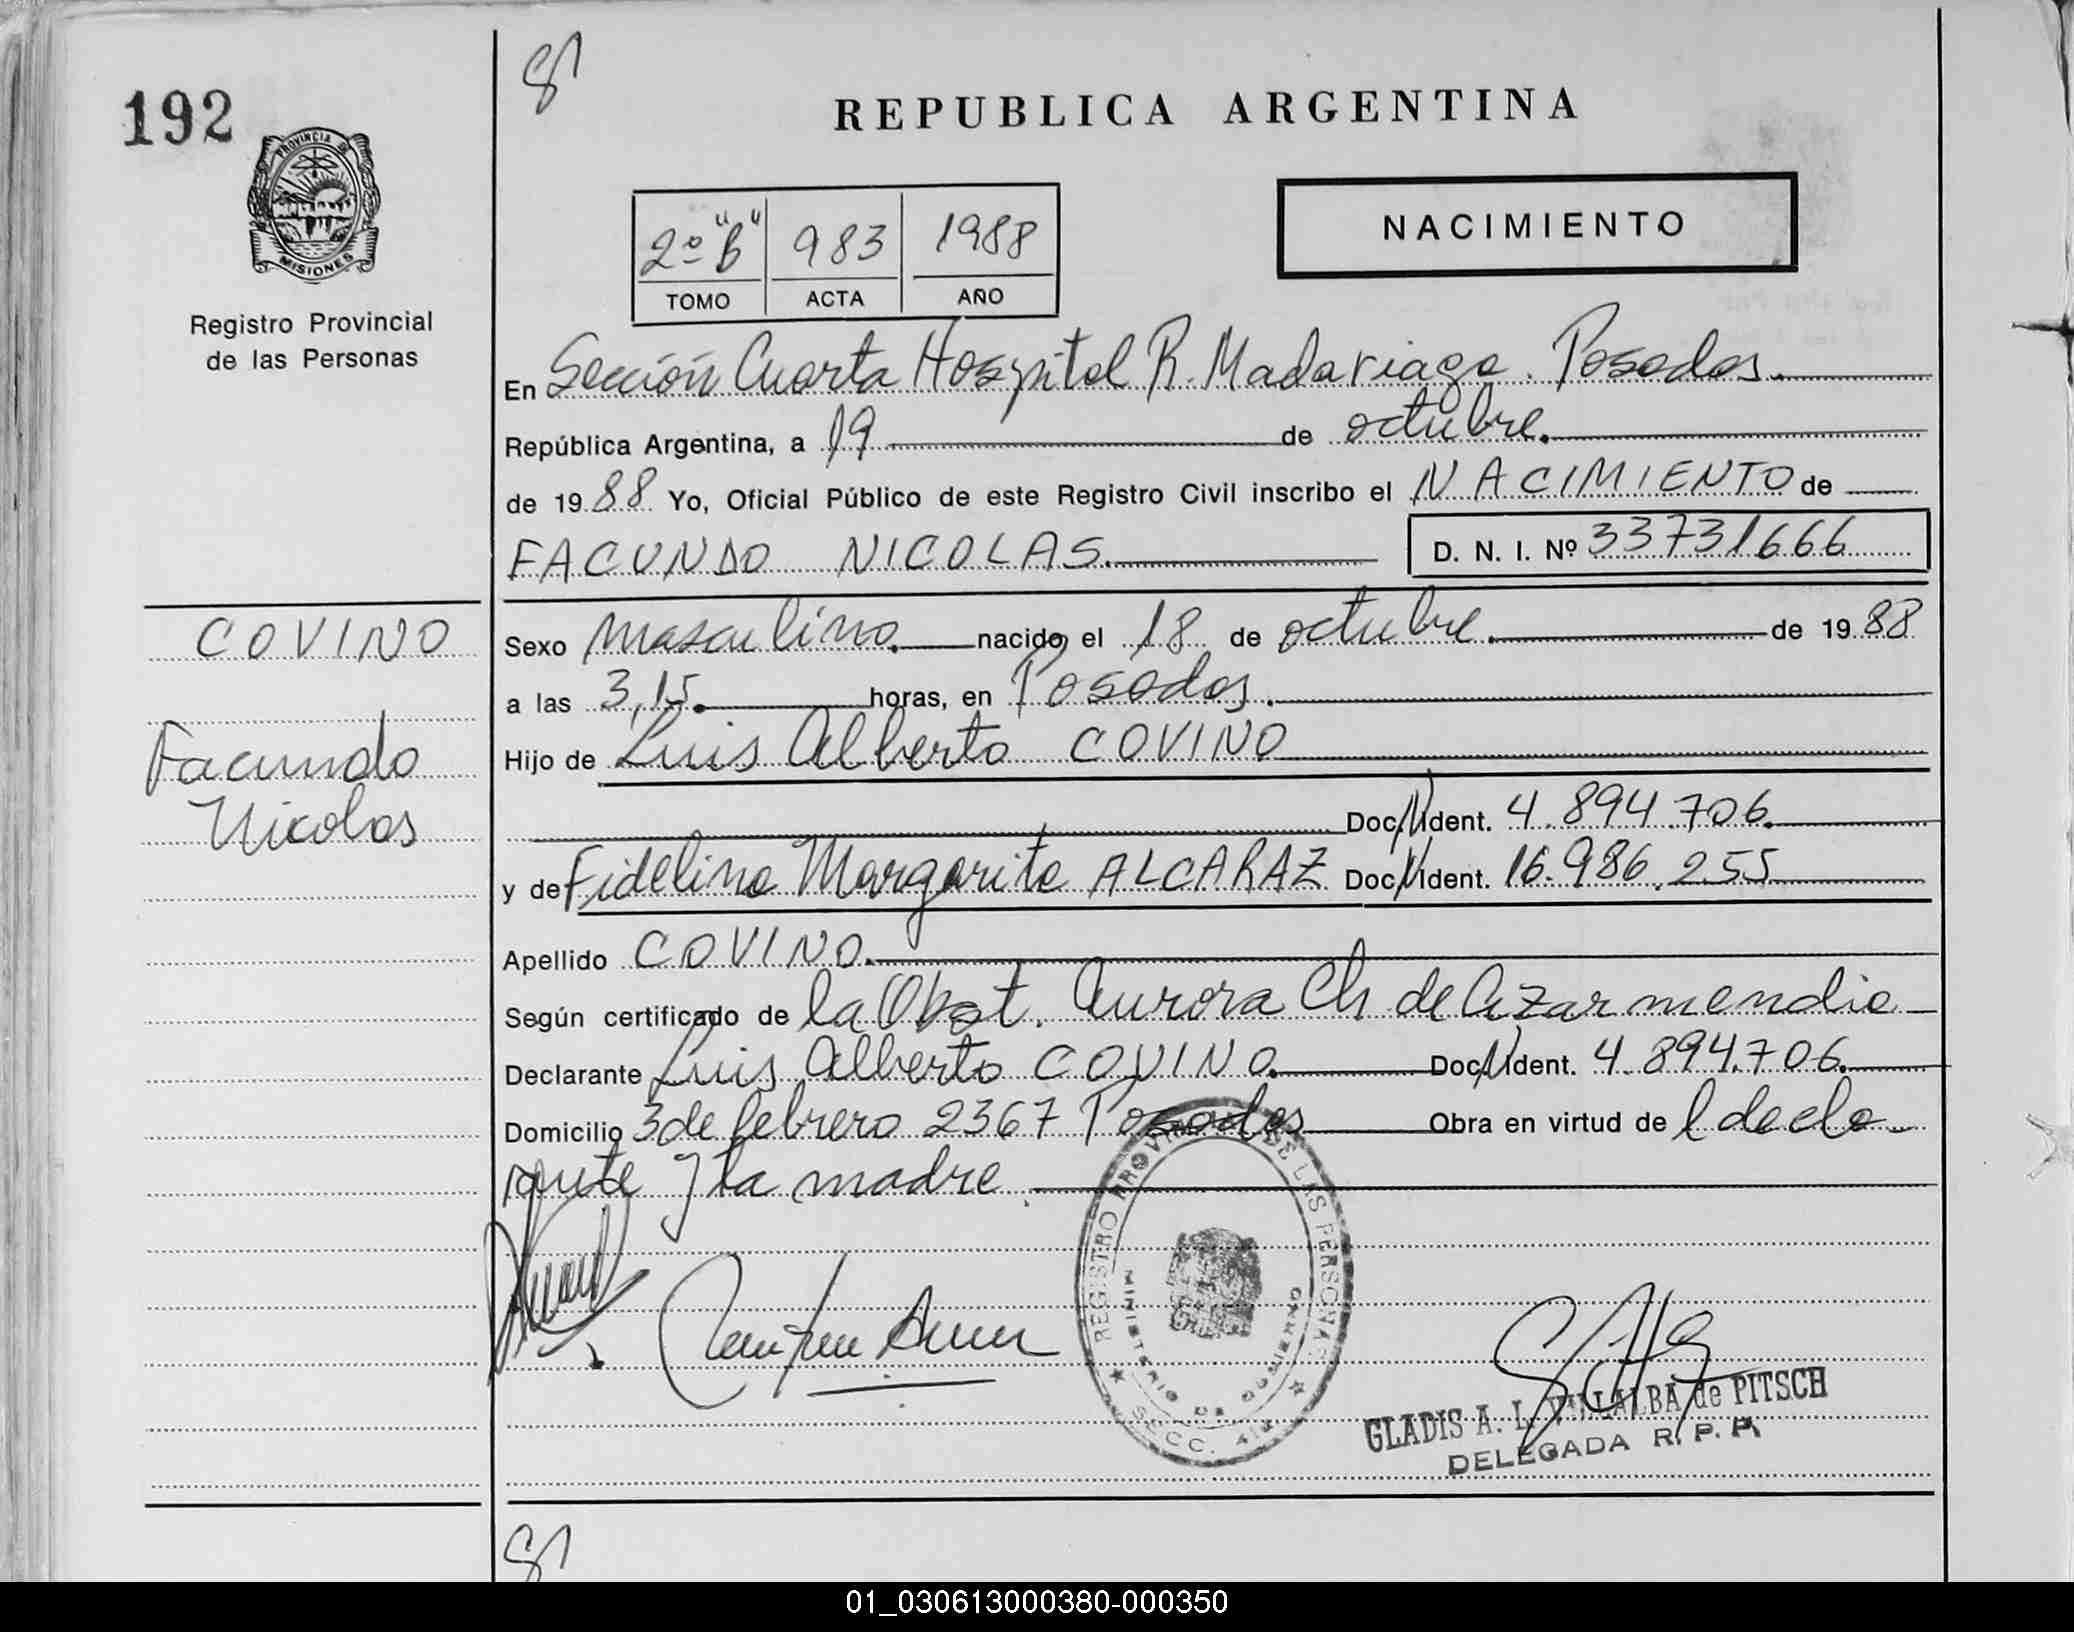 192
PROVINCIA DE
MISIONES
Registro Provincial
de las Personas
COVINO
Facundo
Nicolas
81
REPUBLICA ARGENTINA
2º "B" 983 1988
TOMO ACTA AÑO
NACIMIENTO
En Sección Cuarta Hospital R. Madariaga. Posadas.
República Argentina, a 19 de octubre.
de 1988 Yo, Oficial Público de este Registro Civil inscribo el NACIMIENTO de
FACUNDO NICOLAS. D. N. I. Nº 33731666
Sexo masculino. nacido el 18 de octubre. de 1988
a las 3,15. horas, en Posadas.
Hijo de Luis Alberto COVINO
Doc. N. Ident. 4.894.706.
y de Fidelina Margarita ALCARAZ Doc. N. Ident. 16.986.255
Apellido COVINO.
Según certificado de la Obst. Aurora Ch de Azarmendia
Declarante Luis Alberto COVINO. Doc. N. Ident. 4.894.706.
Domicilio 3 de febrero 2367 Posadas Obra en virtud de l decla
rante y la madre
REGISTRO PROVINCIAL DE LAS PERSONAS
MINISTERIO DE GOBIERNO
SECC. 4ta
GLADIS A. L. VILLALBA de PITSCH
DELEGADA R. P. P.
81
01_030613000380-000350